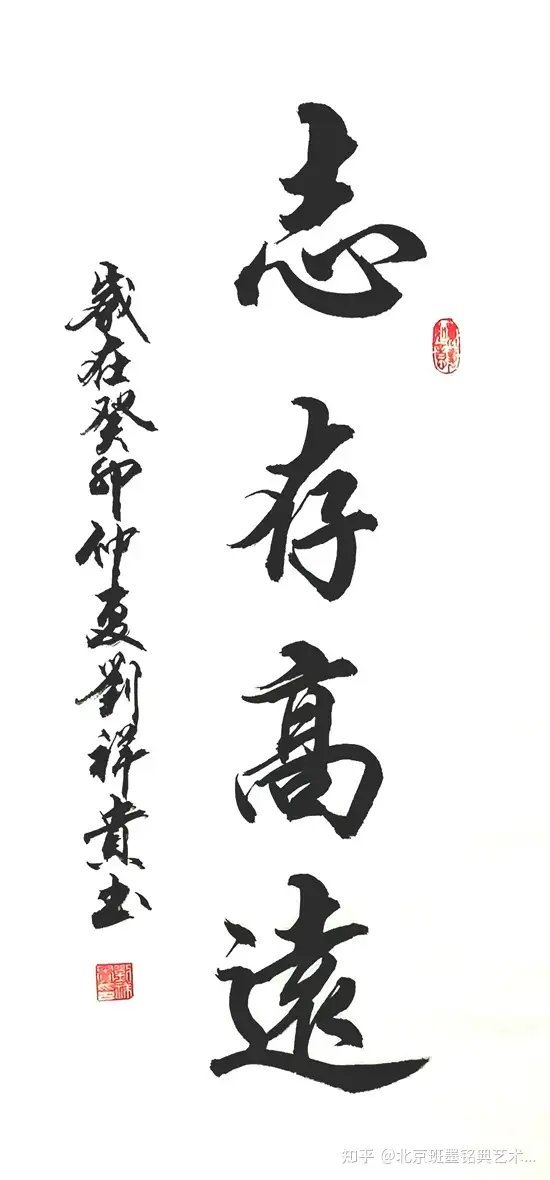 志存髙遠
歲在癸卯仲夏劉祥貴书
知乎 @北京班墨铭典艺术...